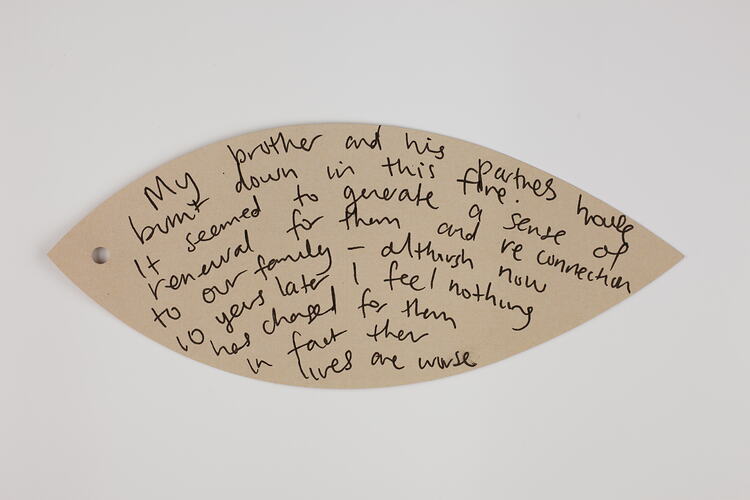 My brother and his partners house
burnt down in this fire.
It seemed to generate a sense of
renewal for them and re connection
to our family – although now
10 years later I feel nothing
has changed for them
in fact their
lives are worse